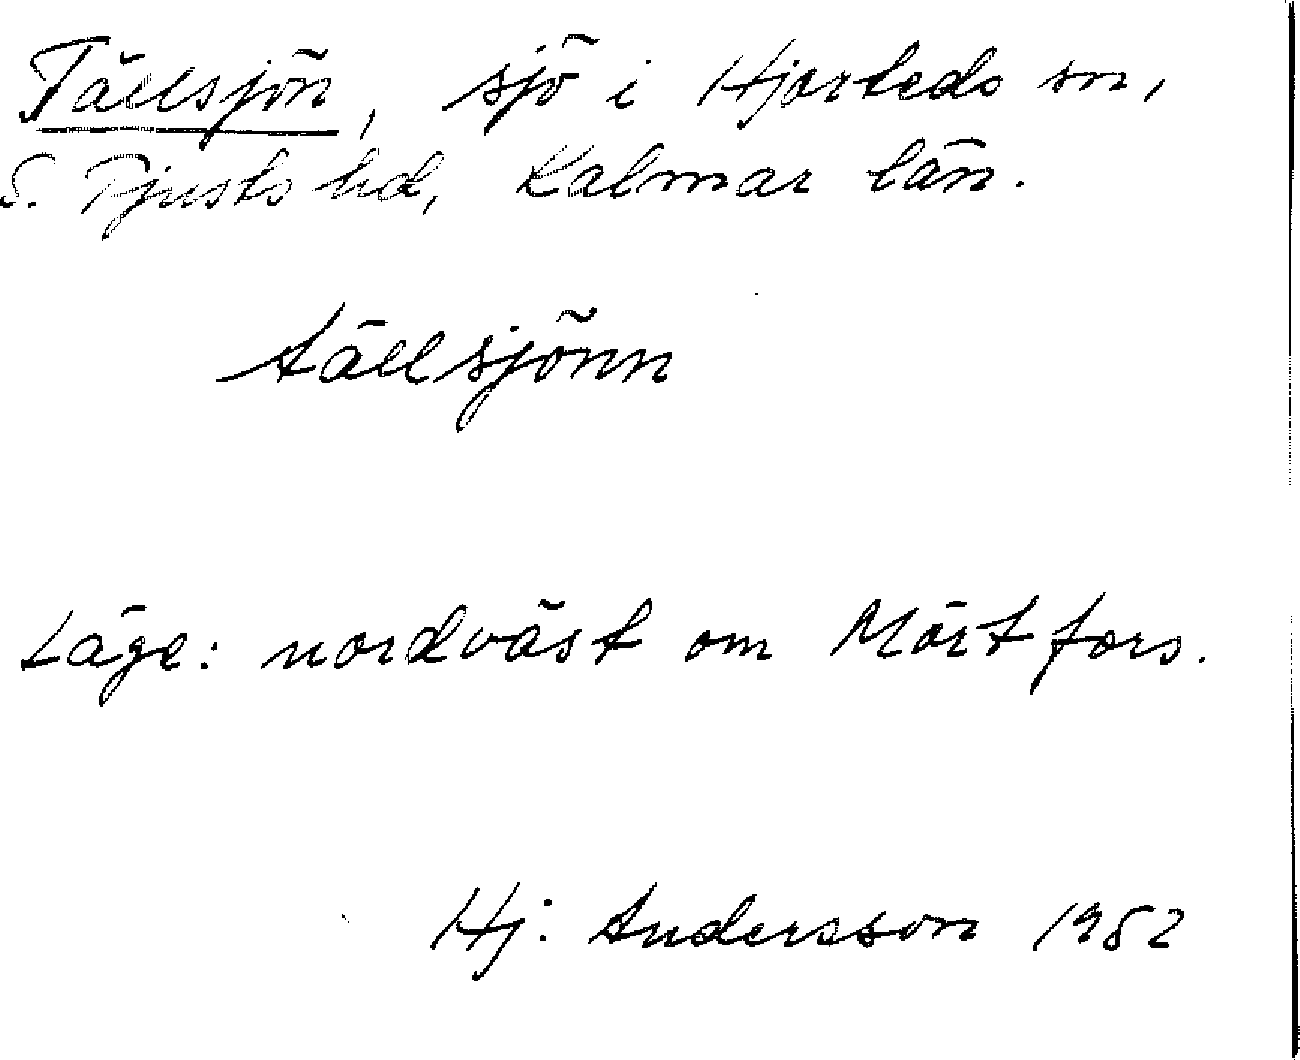 Tällsjön, sjö i Hjorteds sn,
S. Tjusts hd, Kalmar län.
tällsjönn
Läge: nordväst om Mörtfors.
Hj. Andersson 1952